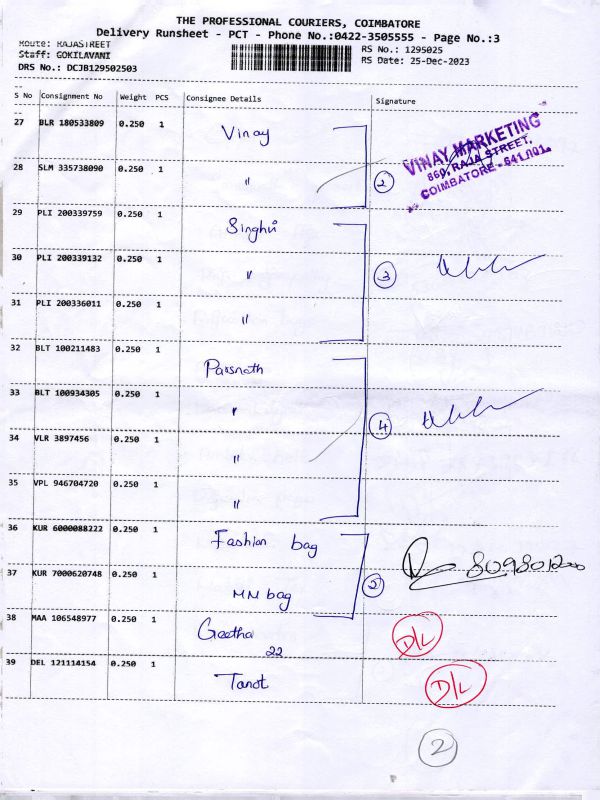 THE PROFESSIONAL COURIERS, COIMBATORE
Delivery Runsheet - PCT - Phone No.:0422-3505555 - Page No.:3
Route: RAJASTREET
Staff: GOKILAVANI
DRS No.: DCJB129502503
RS No.: 1295025
RS Date: 25-Dec-2023
S No Consignment No Weight PCS Consignee Details Signature
27 BLR 180533809 0.250 1 Vinay
28 SLM 335738090 0.250 1 "
2
VINAY MARKETING
860, RAJA STREET,
COIMBATORE - 641 001.
29 PLI 200339759 0.250 1 Singhvi
30 PLI 200339132 0.250 1 "
3
31 PLI 200336011 0.250 1 "
32 BLT 100211483 0.250 1 Parsnath
33 BLT 100934305 0.250 1 "
4
34 VLR 3897456 0.250 1 "
35 VPL 946704720 0.250 1 "
36 KUR 6000088222 0.250 1 Fashion bag
37 KUR 7000620748 0.250 1 MN bag
2
38 MAA 106548977 0.250 1 Geetha D/L
22
39 DEL 121114154 0.250 1 Tanot D/L
2